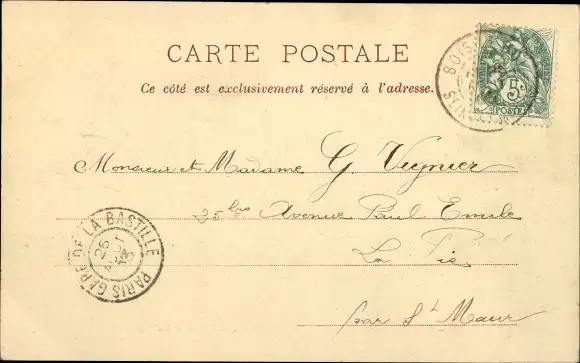 CARTE POSTALE
Ce côté est exclusivement réservé à l'adresse.
BOIS
5c
POSTES
Monsieur et Madame G. Vegnier
25 bis Avenue Paul Emile
La Pie
par St Maur
PARIS GARE DE LA BASTILLE
26